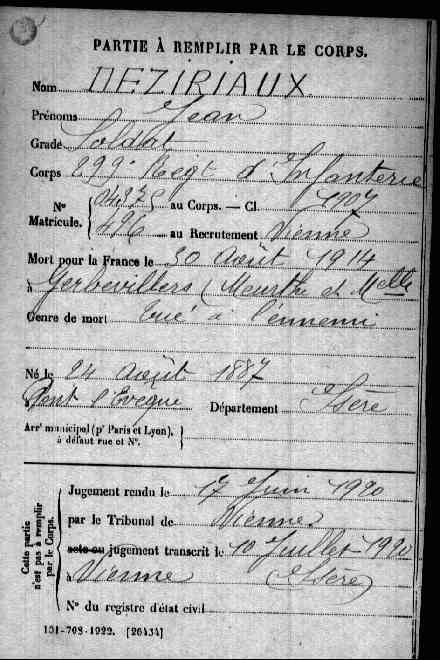 PARTIE À REMPLIR PAR LE CORPS.
Nom DEZIRIAUX
Prénoms Jean
Grade Soldat
Corps 299e Regt d'Infanterie
N° Matricule. { au Corps. — Cl. 1907
496 au Recrutement Vienne
Mort pour la France le 30 Août 1914
à Gerbevillers (Meurthe et Melle
Genre de mort tué à l'ennemi
Né le 24 Août 1887
à Pont l'Evêque Département Isère
Arrt municipal (pr Paris et Lyon), à défaut rue et N°.
Cette partie n'est pas à remplir par le Corps.
Jugement rendu le 17 Juin 1920
par le Tribunal de Vienne
acte ou jugement transcrit le 10 Juillet 1920
à Vienne (Isère)
N° du registre d'état civil
101-708-1922. [26434]